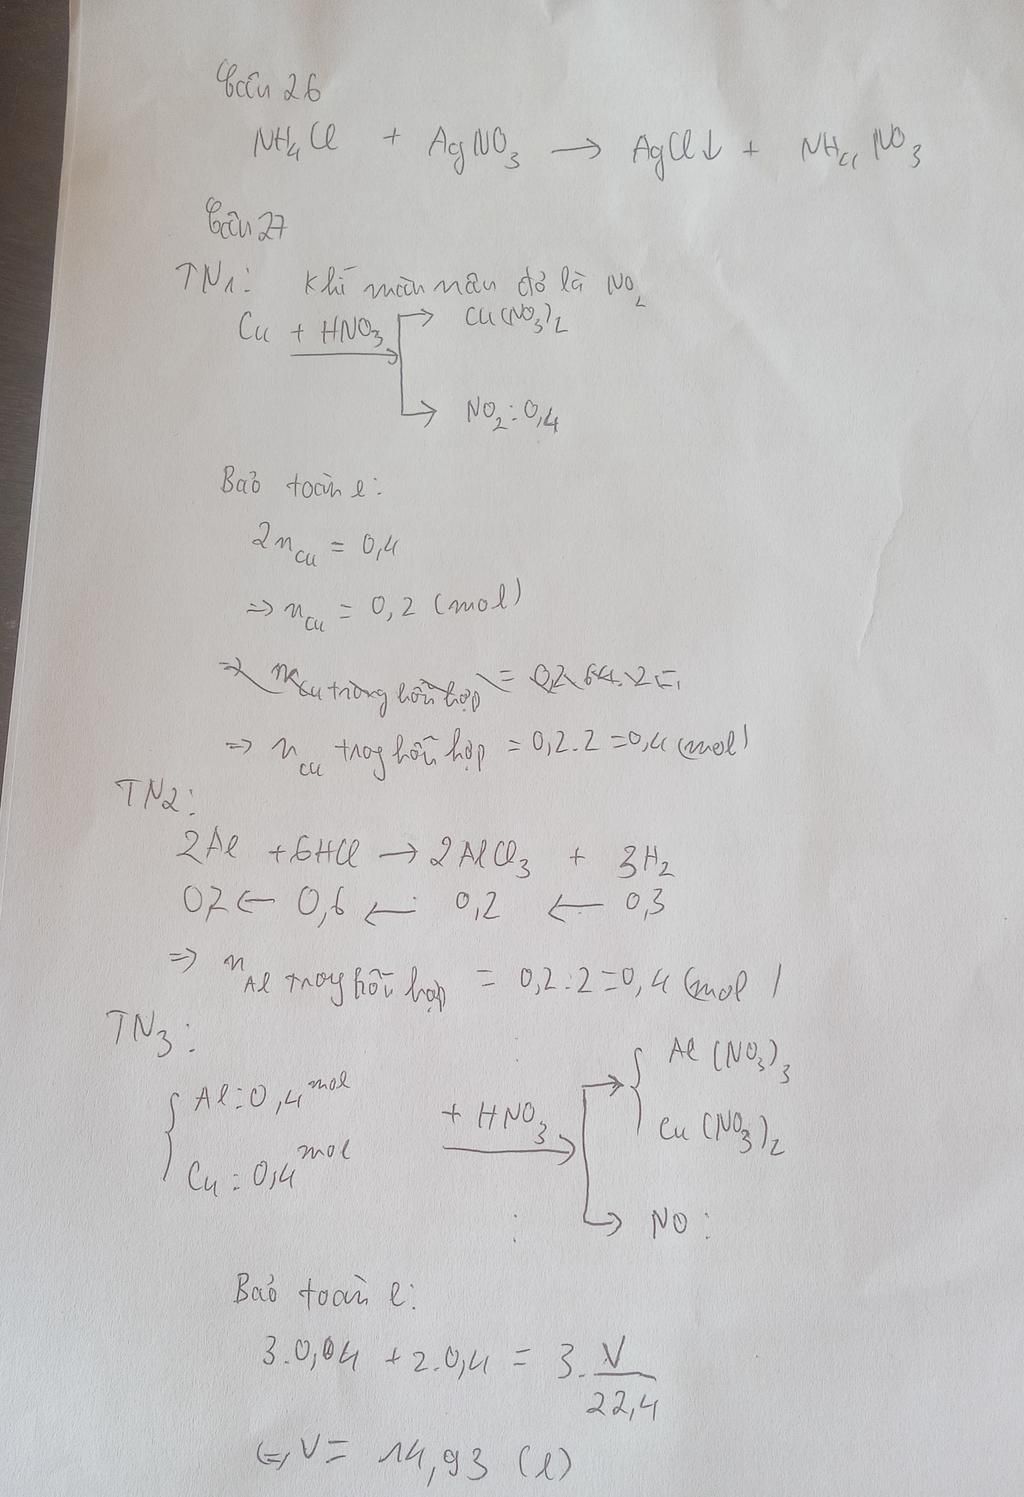 Câu 26
NH4Cl + AgNO3 → AgCl↓ + NH4NO3
Câu 27
TN1: Khí màu nâu đỏ là NO2
Cu + HNO3 → Cu(NO3)2
→ NO2: 0,4
Bảo toàn e:
2nCu = 0,4
=> nCu = 0,2 (mol)
=> mCu trong hỗn hợp = 0,2.64.2 =
=> nCu trog hỗn hợp = 0,2.2 = 0,4 (mol)
TN2:
2Al + 6HCl → 2AlCl3 + 3H2
0,2 ← 0,6 ← 0,2 ← 0,3
=> nAl trog hỗn hợp = 0,2.2 = 0,4 (mol)
TN3:
{ Al: 0,4 mol
Cu: 0,4 mol
+ HNO3 → { Al(NO3)3
Cu(NO3)2
→ NO:
Bảo toàn e:
3.0,4 + 2.0,4 = 3. V/22,4
<=> V = 14,93 (l)